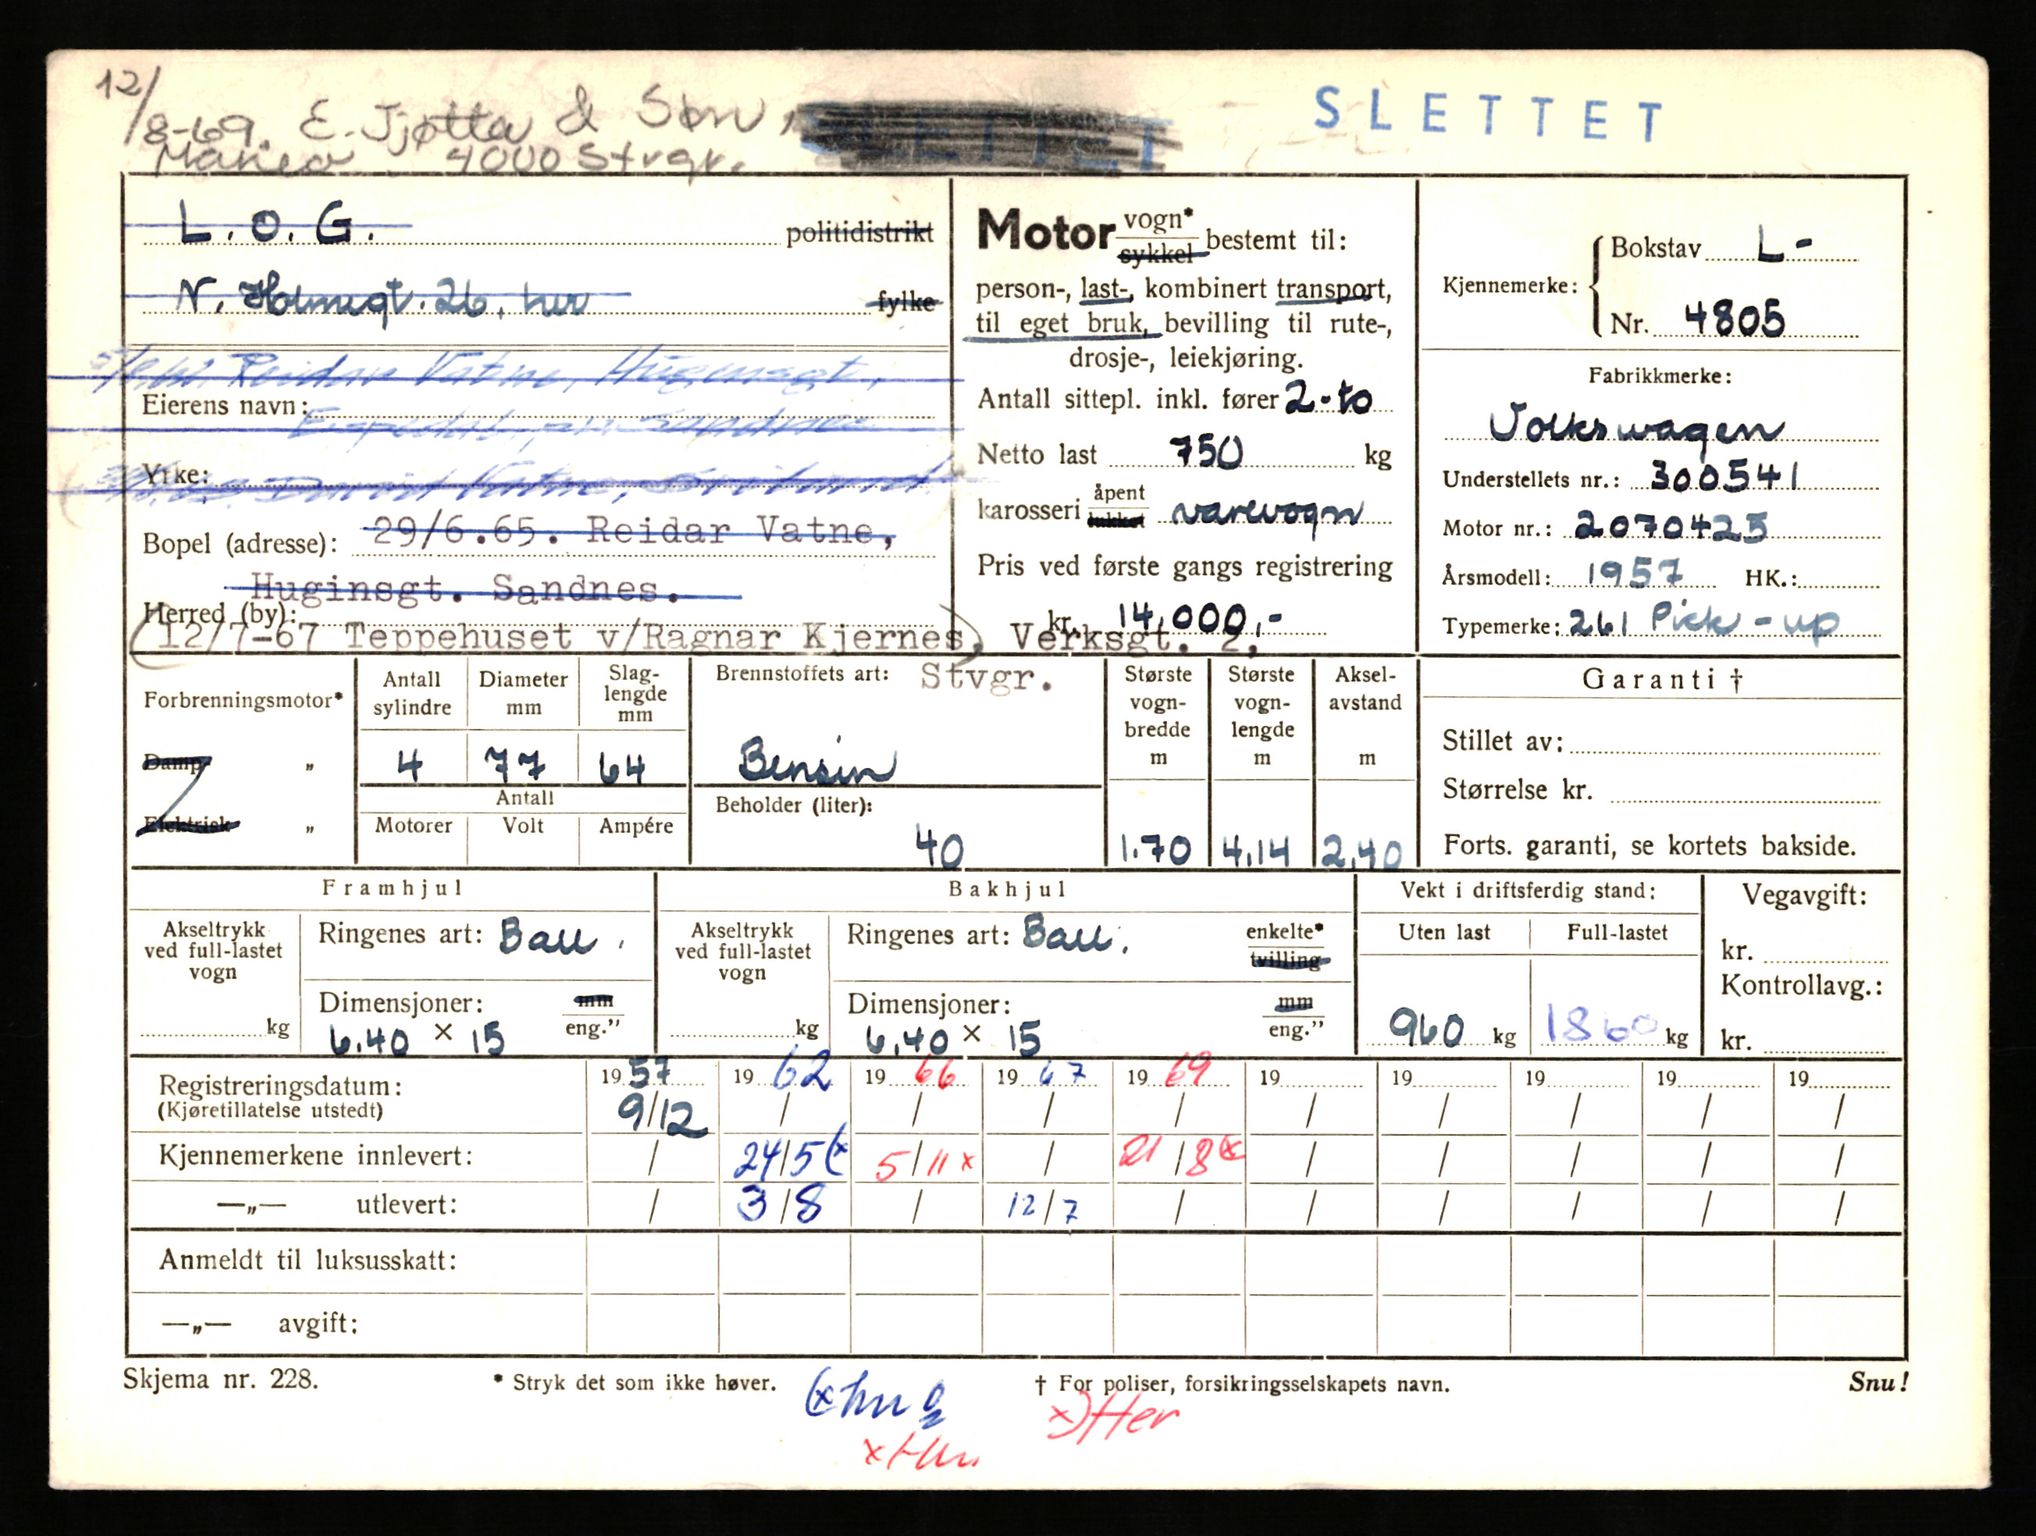 12/8-69. E. Tjøtta & Søn,
Mariero 4000 Stvgr.
SLETTET
SLETTET
L. O. G. politidistrikt
N. Holmegt. 26, her fylke
Reidar Vatne, Huginsgt.
Eierens navn:
Sandnes
Yrke: David Vatne,
Bopel (adresse): 29/6.65. Reidar Vatne,
Huginsgt. Sandnes.
Herred (by):
(12/7-67 Teppehuset v/Ragnar Kjernes) Verksgt. 2,
Stvgr.
Motor vogn* sykkel bestemt til:
person-, last-, kombinert transport,
til eget bruk, bevilling til rute-,
drosje-, leiekjøring.
Antall sittepl. inkl. fører 2-to
Netto last 750 kg
karosseri åpent lukket varevogn
Pris ved første gangs registrering
kr. 14.000,-
Kjennemerke: Bokstav L-
Nr. 4805
Fabrikkmerke:
Volkswagen
Understellets nr.: 300541
Motor nr.: 2070425
Årsmodell: 1957 HK.:
Typemerke: 261 Pick-up
Forbrenningsmotor*
Damp „
Elektrisk „
Antall sylindre Diameter mm Slaglengde mm
4 77 64
Antall
Motorer Volt Ampére
Brennstoffets art:
Bensin
Beholder (liter):
40
Største vognbredde m Største vognlengde m Akselavstand m
1.70 4.14 2.40
Garanti †
Stillet av:
Størrelse kr.
Forts. garanti, se kortets bakside.
Framhjul
Akseltrykk ved full-lastet vogn
kg
Ringenes art: Ball.
Dimensjoner: mm eng."
6.40 × 15
Bakhjul
Akseltrykk ved full-lastet vogn
kg
Ringenes art: Ball. enkelte* tvilling
Dimensjoner: mm eng."
6.40 × 15
Vekt i driftsferdig stand:
Uten last Full-lastet
960 kg 1860 kg
Vegavgift:
kr.
Kontrollavg.:
kr.
Registreringsdatum: 1957 1962 1966 1967 1969 19 19 19 19 19
(Kjøretillatelse utstedt) 9/12 / / / / / / / / /
Kjennemerkene innlevert: / 24/5 (x 5/11 x / 21/8 (x / / / / /
—„— utlevert: / 3/8 / 12/7 / / / / / /
Anmeldt til luksusskatt:
—„— avgift:
Skjema nr. 228. * Stryk det som ikke høver. † For poliser, forsikringsselskapets navn. Snu!